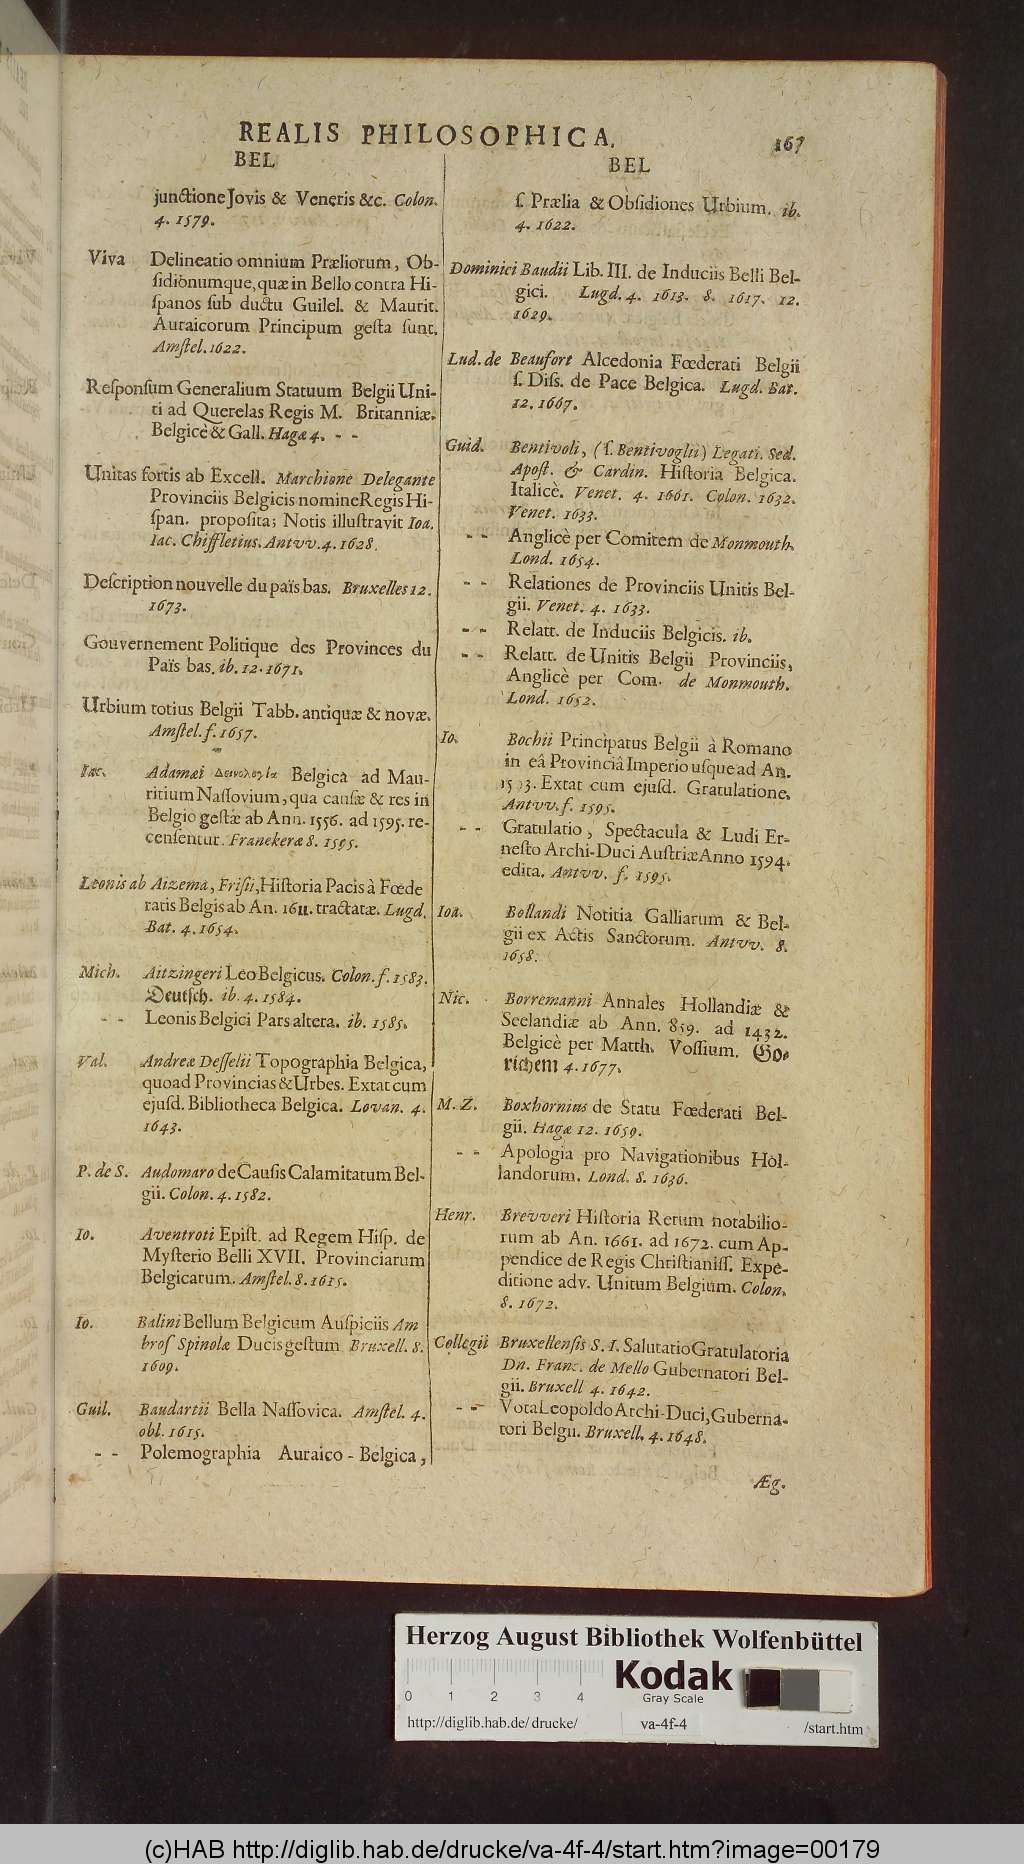 REALIS PHILOSOPHICA. 167
BEL
junctione Jovis & Veneris &c. Colon.
4. 1579.
Viva Delineatio omnium Præliorum, Ob-
ſidionumque, quæ in Bello contra Hi-
ſpanos ſub ductu Guilel. & Maurit.
Auraicorum Principum geſta ſunt.
Amſtel. 1622.
Reſponſum Generalium Statuum Belgii Uni-
ti ad Querelas Regis M. Britanniæ.
Belgicè & Gall. Hagæ 4. - -
Unitas fortis ab Excell. Marchione Delegante
Provinciis Belgicis nomine Regis Hi-
ſpan. propoſita; Notis illuſtravit Ioa.
Iac. Chiffletius. Antvv. 4. 1628.
Deſcription nouvelle du païs bas. Bruxelles 12.
1673.
Gouvernement Politique des Provinces du
Païs bas. ib. 12. 1671.
Urbium totius Belgii Tabb. antiquæ & novæ.
Amſtel. f. 1657.
Iac. Adamæi Δεινολογία Belgica ad Mau-
ritium Naſſovium, qua cauſæ & res in
Belgio geſtæ ab Ann. 1556. ad 1595. re-
cenſentur. Franekeræ 8. 1595.
Leonis ab Aizema, Friſii, Hiſtoria Pacis à Fœde
ratis Belgis ab An. 1611. tractatæ. Lugd.
Bat. 4. 1654.
Mich. Aitzingeri Leo Belgicus. Colon. f. 1583.
Deutſch. ib. 4. 1584.
- - Leonis Belgici Pars altera. ib. 1585.
Val. Andreæ Deſſelii Topographia Belgica,
quoad Provincias & Urbes. Extat cum
ejuſd. Bibliotheca Belgica. Lovan. 4.
1643.
P. de S. Audomaro de Cauſis Calamitatum Bel-
gii. Colon. 4. 1582.
Io. Aventroti Epiſt. ad Regem Hiſp. de
Myſterio Belli XVII. Provinciarum
Belgicarum. Amſtel. 8. 1615.
Io. Balini Bellum Belgicum Auſpiciis Am
broſ Spinolæ Ducis geſtum Bruxell. 8.
1609.
Guil. Baudartii Bella Naſſovica. Amſtel. 4.
obl. 1615.
- - Polemographia Auraico-Belgica,
BEL
ſ. Prælia & Obſidiones Urbium. ib.
4. 1622.
Dominici Baudii Lib. III. de Induciis Belli Bel-
gici. Lugd. 4. 1613. 8. 1617. 12.
1629.
Lud. de Beaufort Alcedonia Fœderati Belgii
ſ. Diſſ. de Pace Belgica. Lugd. Bat.
12. 1667.
Guid. Bentivoli, (ſ. Bentivoglii) Legati. Sed.
Apoſt. & Cardin. Hiſtoria Belgica.
Italicè. Venet. 4. 1661. Colon. 1632.
Venet. 1633.
- - Anglicè per Comitem de Monmouth.
Lond. 1654.
- - Relationes de Provinciis Unitis Bel-
gii. Venet. 4. 1633.
- - Relatt. de Induciis Belgicis. ib.
- - Relatt. de Unitis Belgii Provinciis,
Anglicè per Com. de Monmouth.
Lond. 1652.
Io. Bochii Principatus Belgii à Romano
in eâ Provinciâ Imperio uſque ad An.
Extat cum ejuſd. Gratulatione.
Antvv. f. 1595.
- - Gratulatio, Spectacula & Ludi Er-
neſto Archi-Duci Auſtriæ Anno 1594.
edita. Antvv. f. 1595.
Ioa. Bollandi Notitia Galliarum & Bel-
gii ex Actis Sanctorum. Antvv. 8.
1658.
Nic. Borremanni Annales Hollandiæ &
Seelandiæ ab Ann. 859. ad 1432.
Belgicè per Matth. Voſſium. Go-
richem 4. 1677.
M. Z. Boxhornius de Statu Fœderati Bel-
gii. Hagæ 12. 1659.
- - Apologia pro Navigationibus Hol-
landorum. Lond. 8. 1636.
Henr. Brevveri Hiſtoria Rerum notabilio-
rum ab An. 1661. ad 1672. cum Ap-
pendice de Regis Chriſtianiſſ. Expe-
ditione adv. Unitum Belgium. Colon.
8. 1672.
Collegii Bruxellenſis S. I. Salutatio Gratulatoria
Dn. Franc. de Mello Gubernatori Bel-
gii. Bruxell 4. 1642.
- - Vota Leopoldo Archi-Duci, Guberna-
tori Belgii. Bruxell. 4. 1648.
Æg.
Herzog August Bibliothek Wolfenbüttel
0 1 2 3 4
Kodak
Gray Scale
http://diglib.hab.de/drucke/ va-4f-4 /start.htm
(c)HAB http://diglib.hab.de/drucke/va-4f-4/start.htm?image=00179